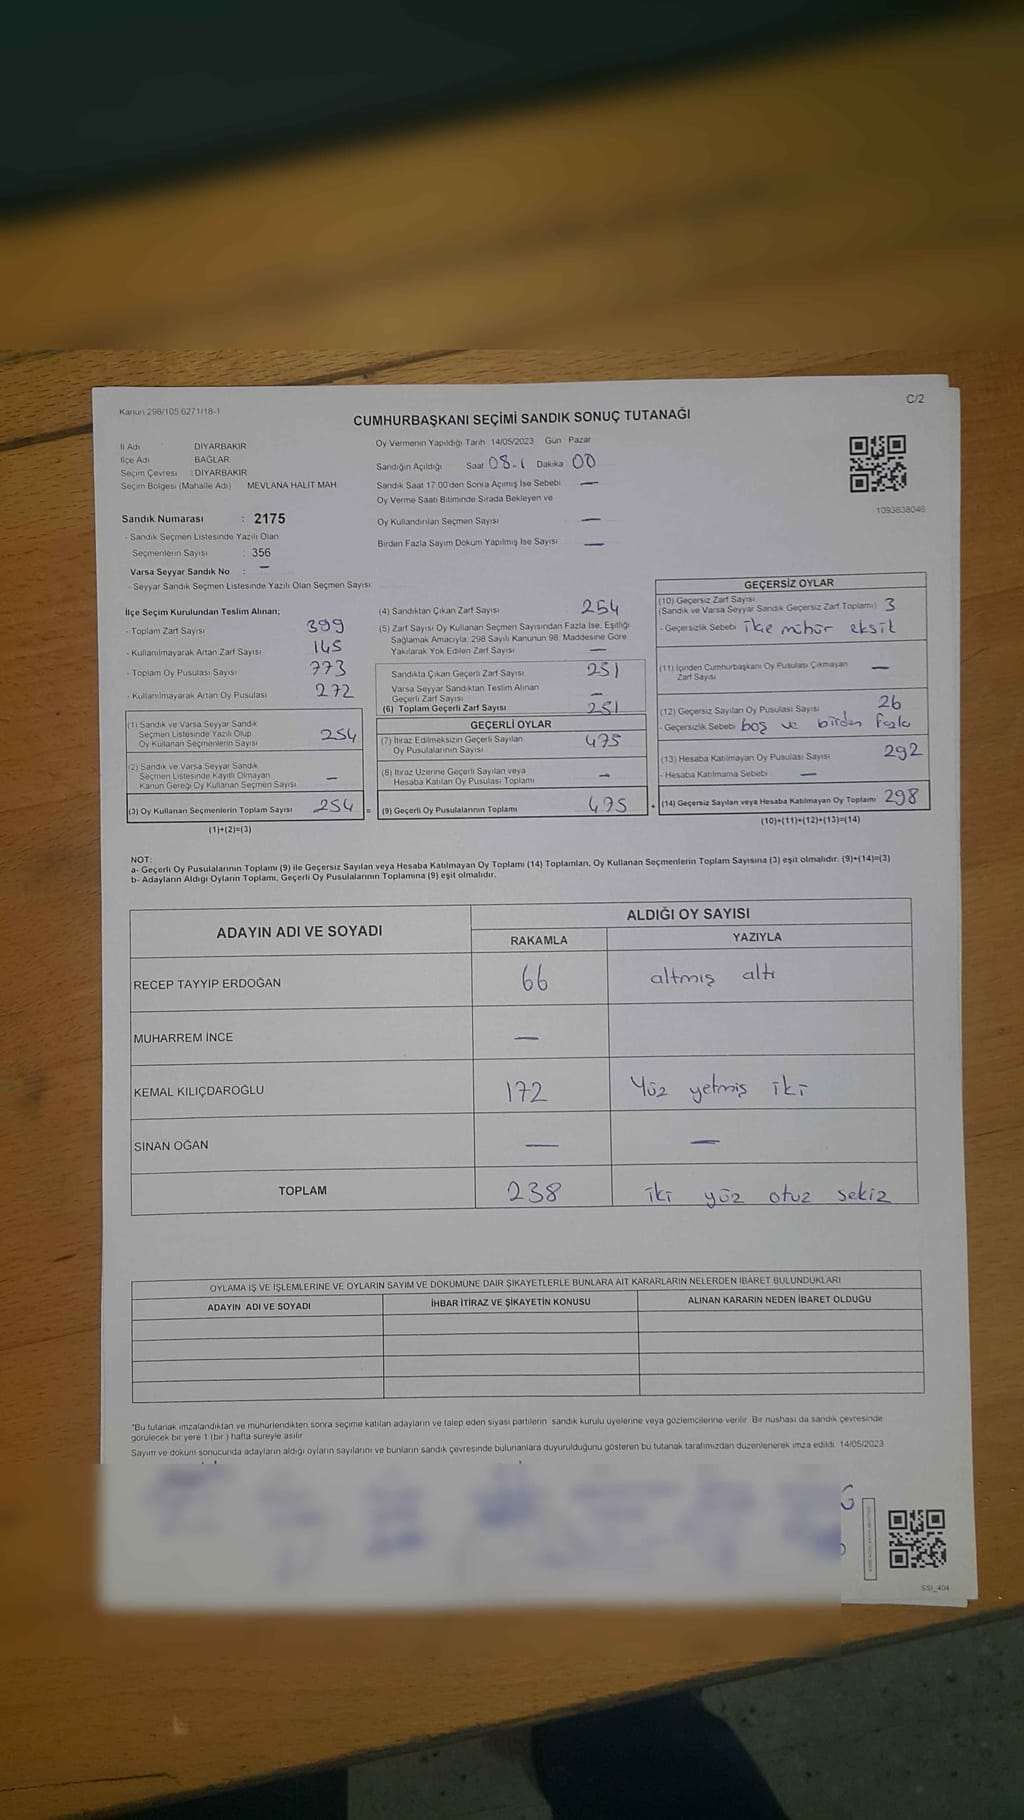 Kanun 298/105 6271/18-1
C/2
CUMHURBAŞKANI SEÇİMİ SANDIK SONUÇ TUTANAĞI
İl Adı DİYARBAKIR
İlçe Adı BAĞLAR
Seçim Çevresi : DİYARBAKIR
Seçim Bölgesi (Mahalle Adı) MEVLANA HALİT MAH
Sandık Numarası : 2175
- Sandık Seçmen Listesinde Yazılı Olan
Seçmenlerin Sayısı : 356
Varsa Seyyar Sandık No : —
- Seyyar Sandık Seçmen Listesinde Yazılı Olan Seçmen Sayısı
Oy Vermenin Yapıldığı Tarih 14/05/2023 Gün Pazar
Sandığın Açıldığı Saat 08.1 Dakika 00
Sandık Saat 17:00'den Sonra Açılmış İse Sebebi —
Oy Verme Saati Bitiminde Sırada Bekleyen ve
Oy Kullandırılan Seçmen Sayısı —
Birden Fazla Sayım Döküm Yapılmış İse Sayısı —
1093838046
İlçe Seçim Kurulundan Teslim Alınan;
- Toplam Zarf Sayısı 399
- Kullanılmayarak Artan Zarf Sayısı 145
- Toplam Oy Pusulası Sayısı 773
- Kullanılmayarak Artan Oy Pusulası 272
(1) Sandık ve Varsa Seyyar Sandık
Seçmen Listesinde Yazılı Olup
Oy Kullanan Seçmenlerin Sayısı 254
(2) Sandık ve Varsa Seyyar Sandık
Seçmen Listesinde Kayıtlı Olmayan
Kanun Gereği Oy Kullanan Seçmen Sayısı —
(3) Oy Kullanan Seçmenlerin Toplam Sayısı 254 =
(1)+(2)=(3)
(4) Sandıktan Çıkan Zarf Sayısı 254
(5) Zarf Sayısı Oy Kullanan Seçmen Sayısından Fazla İse, Eşitliği
Sağlamak Amacıyla, 298 Sayılı Kanunun 98. Maddesine Göre
Yakılarak Yok Edilen Zarf Sayısı —
Sandıkta Çıkan Geçerli Zarf Sayısı 251
Varsa Seyyar Sandıktan Teslim Alınan
Geçerli Zarf Sayısı —
(6) Toplam Geçerli Zarf Sayısı 251
GEÇERLİ OYLAR
(7) İtiraz Edilmeksizin Geçerli Sayılan
Oy Pusulalarının Sayısı 475
(8) İtiraz Üzerine Geçerli Sayılan veya
Hesaba Katılan Oy Pusulası Toplamı —
(9) Geçerli Oy Pusulalarının Toplamı 475 +
GEÇERSİZ OYLAR
(10) Geçersiz Zarf Sayısı
(Sandık ve Varsa Seyyar Sandık Geçersiz Zarf Toplamı) 3
- Geçersizlik Sebebi ilçe mühür eksik
(11) İçinden Cumhurbaşkanı Oy Pusulası Çıkmayan
Zarf Sayısı —
(12) Geçersiz Sayılan Oy Pusulası Sayısı 26
- Geçersizlik Sebebi boş ve birden fazla
(13) Hesaba Katılmayan Oy Pusulası Sayısı 292
- Hesaba Katılmama Sebebi —
(14) Geçersiz Sayılan veya Hesaba Katılmayan Oy Toplamı 298
(10)+(11)+(12)+(13)=(14)
NOT:
a- Geçerli Oy Pusulalarının Toplamı (9) ile Geçersiz Sayılan veya Hesaba Katılmayan Oy Toplamı (14) Toplamları, Oy Kullanan Seçmenlerin Toplam Sayısına (3) eşit olmalıdır. (9)+(14)=(3)
b- Adayların Aldığı Oyların Toplamı, Geçerli Oy Pusulalarının Toplamına (9) eşit olmalıdır.
ADAYIN ADI VE SOYADI
ALDIĞI OY SAYISI
RAKAMLA YAZIYLA
RECEP TAYYİP ERDOĞAN 66 altmış altı
MUHARREM İNCE —
KEMAL KILIÇDAROĞLU 172 Yüz yetmiş iki
SİNAN OĞAN — —
TOPLAM 238 iki yüz otuz sekiz
OYLAMA İŞ VE İŞLEMLERİNE VE OYLARIN SAYIM VE DÖKÜMÜNE DAİR ŞİKAYETLERLE BUNLARA AİT KARARLARIN NELERDEN İBARET BULUNDUKLARI
ADAYIN ADI VE SOYADI İHBAR İTİRAZ VE ŞİKAYETİN KONUSU ALINAN KARARIN NEDEN İBARET OLDUĞU
*Bu tutanak imzalandıktan ve mühürlendikten sonra seçime katılan adayların ve talep eden siyasi partilerin sandık kurulu üyelerine veya gözlemcilerine verilir. Bir nüshası da sandık çevresinde
görülecek bir yere 1 (bir) hafta süreyle asılır
Sayım ve döküm sonucunda adayların aldığı oyların sayılarını ve bunların sandık çevresinde bulunanlara duyurulduğunu gösteren bu tutanak tarafımızdan düzenlenerek imza edildi. 14/05/2023
SSI_404